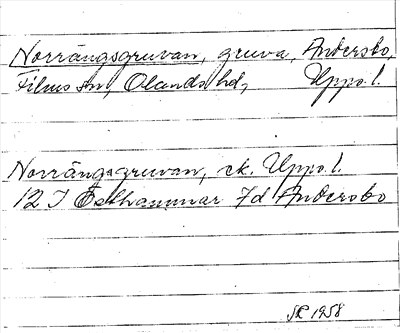 Norrängsgruvan, gruva, Andersbo,
Films sn, Olands hd, Upps. l.
Norrängsgruvan, ek. Upps. l.
12 I Östhammar 7d Andersbo
1958